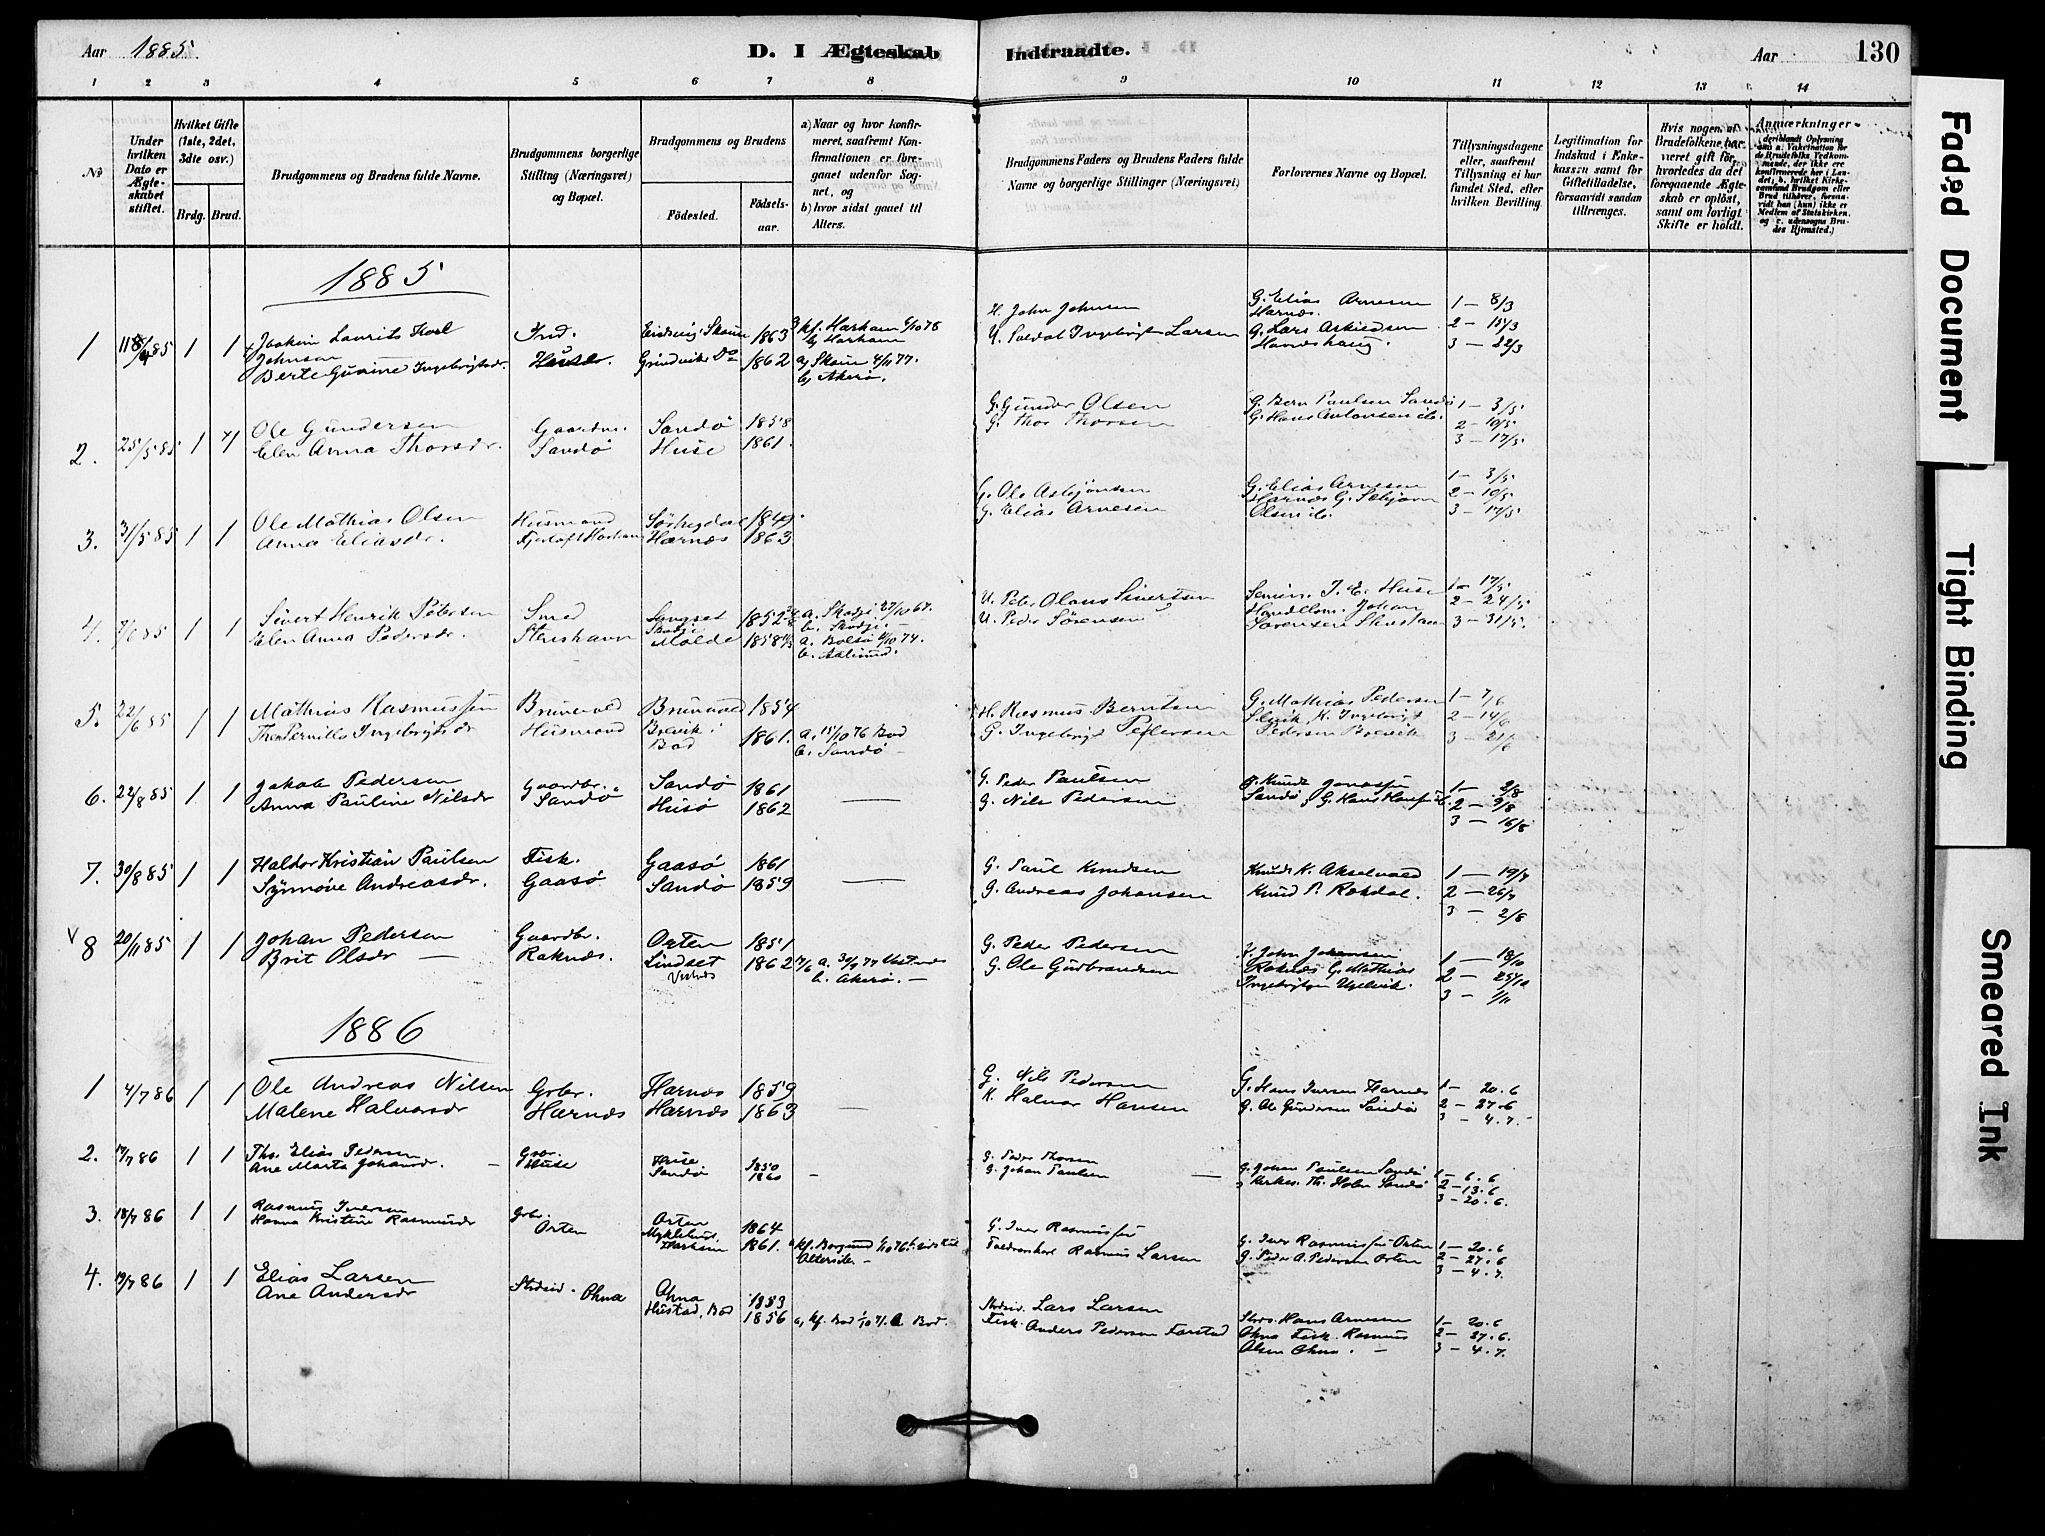 Aar 1885.
D. I Ægteskab Indtraadte.
Aar
130
1 2 3 4 5 6 7 8 9 10 11 12 13 14
No
Under hvilken Dato er Ægteskabet stiftet.
Hvilket Gifte (1ste, 2det, 3dte osv.)
Brdg. Brud.
Brudgommens og Brudens fulde Navne.
Brudgommens borgerlige Stilling (Næringsvei) og Bopæl.
Brudgommens og Brudens
Födested.
Födselsaar.
a) Naar og hvor konfirmeret, saafremt Konfirmationen er foregaaet udenfor Sognet, og
b) hvor sidst gaaet til Alters.
Brudgommens Faders og Brudens Faders fulde Navne og borgerlige Stillinger (Næringsvei)
Forlovernes Navne og Bopæl.
Tillysningsdagene eller, saafremt Tillysning ei har fundet Sted, efter hvilken Bevilling.
Legitimation for Indskud i Enkekassen samt for Giftetilladelse, forsaavidt saadan tiltrænges.
Hvis nogen af Brudefolkene har været gift før, hvorledes da det foregaaende Ægteskab er opløst, samt om lovligt Skifte er holdt.
Anmærkninger
1885
1 1 1 Joakim Laurits Karl Johnsen Ind. 1863
Berte Gurine Ingebrigtsdr. Huse. Grindvike Do 1862 a, Skaun 4/11 77. b, Akerø.
H. John Johnsen
Ingebrigt Larsen
G. Elias Arnesen Harnæs.
G. Lars
1 — 8/3
2 — 15/3
3 — 22/3
2. 25/5 85 1 1 Ole Gundersen Gaardbr. Sandö 1858
Elen Anna Thorsdr. Sandö Huse 1861.
G. Gunder Olsen
G. Thor Thorsen
G. Bern Paulsen Sandö
G. Hans Antonsen do.
1 — 3/5
2 — 10/5
3 — 17/5
3. 31/5 85 1 1 Ole Mathias Olsen Husmand 1849.
Anna Eliasdr. Harnæs 1863
G. Ole Asbjörnsen
G. Elias Arnesen
G. Elias Arnesen
Harnæs G.
Olsen do.
1 — 3/5
2 — 10/5
3 — 17/5
4. 7/6 85 1 1 Sivert Henrik Petersen Smed Skodje 1852 a. Skodje 27/10 67. b. Skodje. —
Elen Anna Pedersdr. Stenshavn Molde 1858 a. Bolsø 4/10 74. b. Aalesund.
U. Peter Olaus Sivertsen
U. Peder Sörensen
J. E. Huse
Handelsm. Johan
Sörensen
1 — 17/5
2 — 24/5
3 — 31/5.
5. 22/6 85 1 1 Mathias Rasmussen Brunvold Brunvold 1854
Pernilla Ingebrigtsdr Husmand Brevik i Bod 1861. a. 15/10 76 Bod b. Sandö —
H. Rasmus Berntsen
G. Ingebrigt Pedersen
G. Mathias Pedersen
K. Ingebrigt
Pedersen Brevik
1 — 7/6
2 — 14/6
3 — 21/6
6. 22/8 85 1 1 Jakob Pedersen Gaardbr. Sandö 1861
Anna Pauline Nilsdr Sandö Husö 1862 —
G. Peder Paulsen
G. Nils Pedersen
G. Knud Jonassen
Sandö, G. Hans Hansen do.
1 — 2/8
2 — 9/8
3 — 16/8
7. 30/8 85 1 1 Haldor Kristian Paulsen Fisk. Gaasö 1861
Synnöve Andreasdr. Gaasö Sandö 1859 —
G. Paul Knudsen
G. Andreas Johansen
Knud K. Akselvold
Knud P. Rokdal.
1 — 19/7
2 — 26/7
3 — 2/8
V 8 20/11 85 1 1 Johan Pedersen Gaardbr. Orten 1851
Brit Olsdr — Raknæs. Lindset Vestnæs 1862 a. 30/9 77 Vestnæs b. Akerø. —
G. Peder Pedersen
G. Ole Gudbrandsen
K. John Johansen
Raknæs G. Mathias
Ingebrigtsen
1 — 18/10
2 — 25/10
3 — 1/11
1886
1 4/7 86 1 1 Ole Andreas Nilsen Grbr. Harnæs 1859
Malene Halvorsdr Harnæs Harnæs 1863 —
G. Nils Pedersen
K. Halvor Hansen
G. Hans Iversen Harnæs
G. Ole Gundersen Sandö
1 — 20.6
2 — 27.6
3 — 4.7.
2. 17/7 86 1 1 Ths. Elias Pedersen Grbr. Huse 1850
Ane Marta Johansdr. — Huse Sandö 1860 —
G. Peder Thorsen
G. Johan Paulsen —
G. Johan Paulsen Sandö
Kirkes. Th. Holm Sandö
1 — 6.6
2 — 13.6
3 — 20.6.
3. 18/7 86 1 1 Rasmus Iversen Grbr. Orten 1864
Hanna Kristine Rasmusdr Orten Myklebust, Harham 1861.
G. Iver Rasmussen
Rasmus Larsen
G. Iver Rasmussen Orten
G. Peder A. Pedersen Orten
1 — 20.6
2 — 27.6
3 — 4.7.
4. 19/7 86 1 1 Elias Larsen Strdsid. Ohna Ohna 1853
Ane Andersdr Hustad, Bod 1856
Strdsid. Lars Larsen
Fisk. Anders Pedersen Farstad
Strds. Hans Arnesen
Ohna Fisk. Rasmus
Olsen Ohna. —
1 — 20.6
2 — 27.6.
3 — 4.7.
Faded Document
Tight Binding
Smeared Ink